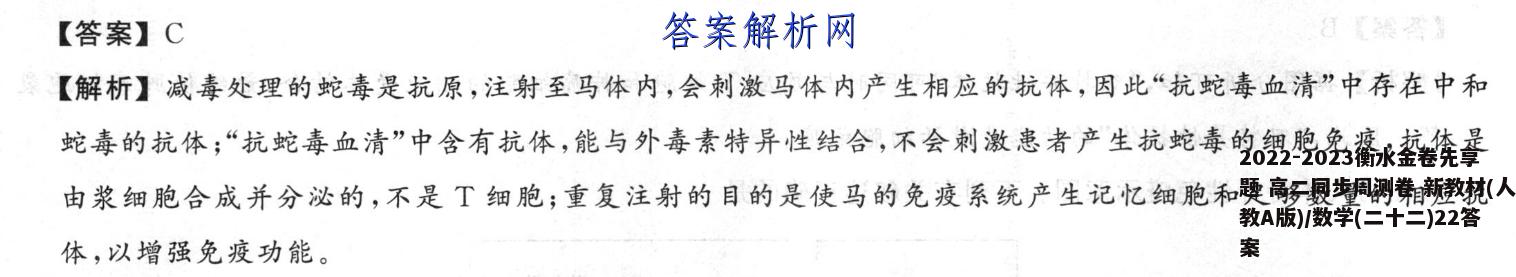 【答案】C
答案解析网
【解析】减毒处理的蛇毒是抗原,注射至马体内,会刺激马体内产生相应的抗体,因此“抗蛇毒血清”中存在中和
蛇毒的抗体;“抗蛇毒血清”中含有抗体,能与外毒素特异性结合,不会刺激患者产生抗蛇毒的细胞免疫,抗体是
由浆细胞合成并分泌的,不是T细胞;重复注射的目的是使马的免疫系统产生记忆细胞和足够数量的相应抗
体,以增强免疫功能。
2022-2023衡水金卷先享
题 高二同步周测卷 新教材(人
教A版)/数学(二十二)22答
案